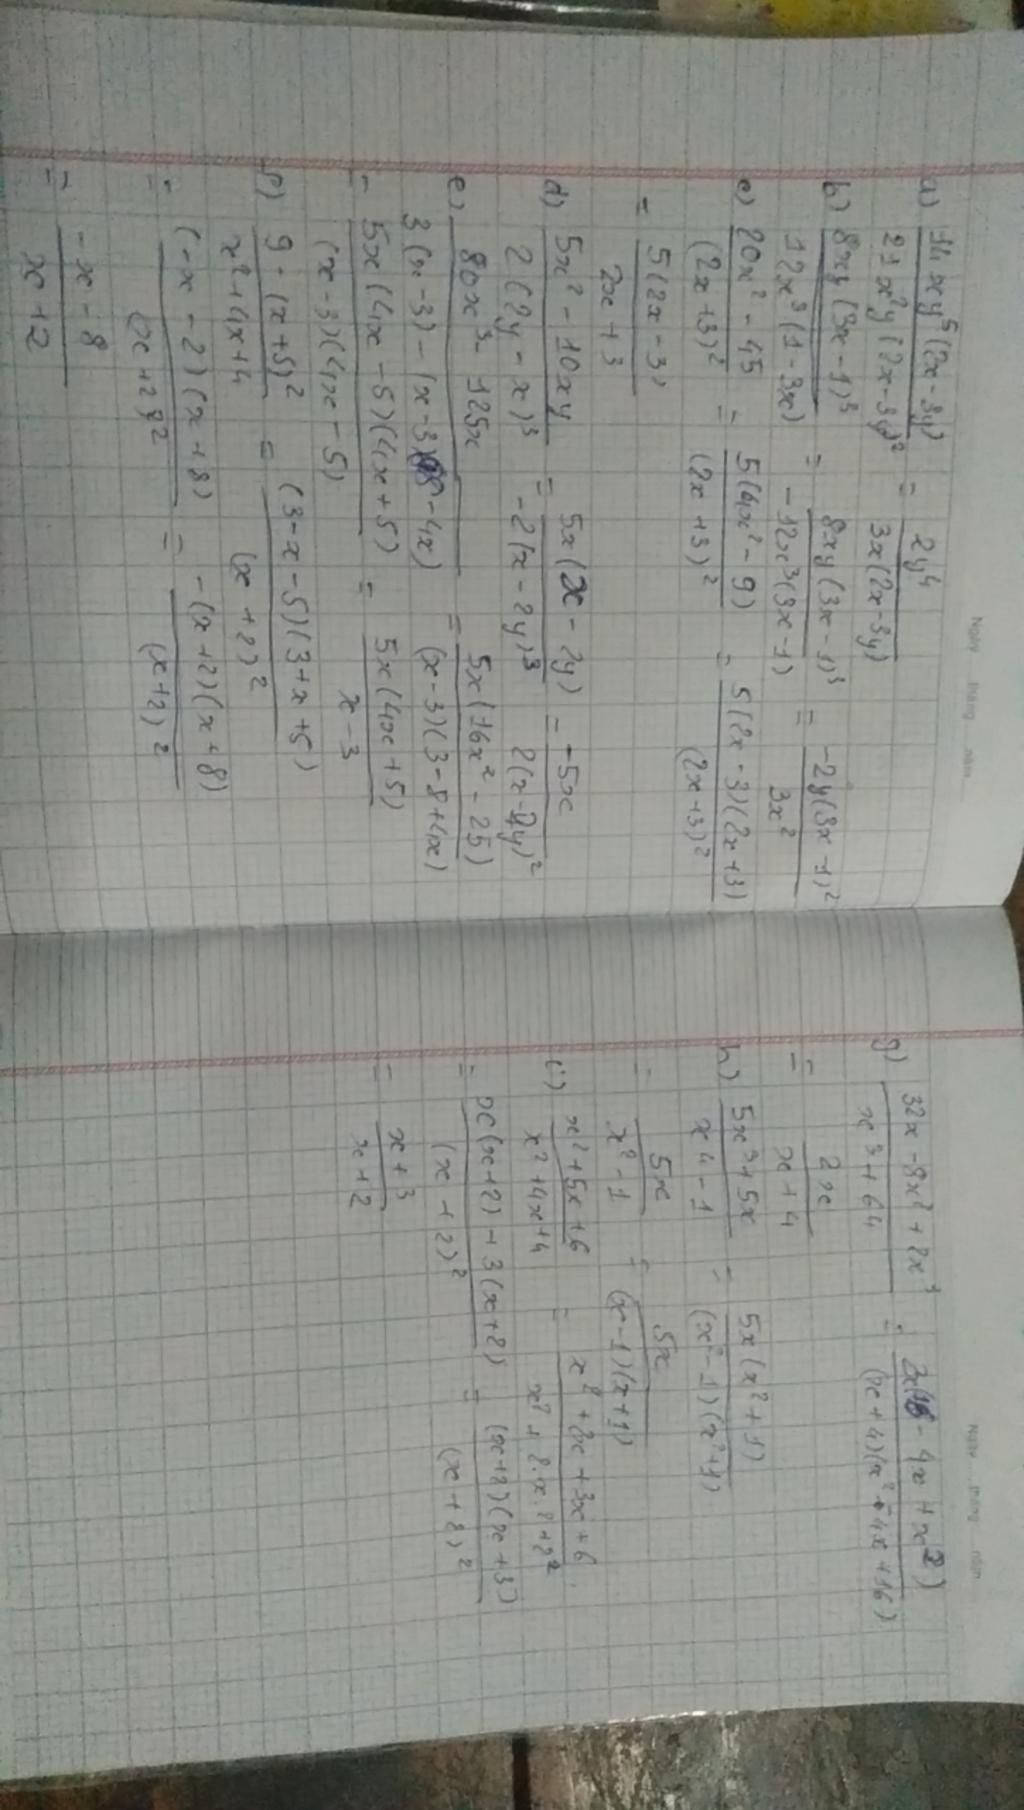 Ngày tháng năm
a) 14xy⁵(2x-3y) / 21x²y(2x-3y)² = 2y⁴ / 3x(2x-3y)
b) 8xy(3x-1)³ / 12x³(1-3x) = 8xy(3x-1)³ / -12x³(3x-1) = -2y(3x-1)² / 3x²
c) 20x²-45 / (2x+3)² = 5(4x²-9) / (2x+3)² = 5(2x-3)(2x+3) / (2x+3)²
= 5(2x-3) / 2x+3
d) 5x²-10xy / 2(2y-x)³ = 5x(x-2y) / -2(x-2y)³ = -5x / 2(x-2y)²
e) 80x³-125x / 3(x-3)-(x-3)(8-4x) = 5x(16x²-25) / (x-3)(3-8+4x)
= 5x(4x-5)(4x+5) / (x-3)(4x-5) = 5x(4x+5) / x-3
f) 9-(x+5)² / x²+4x+4 = (3-x-5)(3+x+5) / (x+2)²
= (-x-2)(x+8) / (x+2)² = -(x+2)(x+8) / (x+2)²
= -x-8 / x+2
Ngày tháng năm
g) 32x-8x²+2x³ / x³+64 = 2x(16-4x+x²) / (x+4)(x²-4x+16)
= 2x / x+4
h) 5x³+5x / x⁴-1 = 5x(x²+1) / (x²-1)(x²+1)
= 5x / x²-1 = 5x / (x-1)(x+1)
i) x²+5x+6 / x²+4x+4 = x²+2x+3x+6 / x²+2.x.2+2²
= x(x+2)+3(x+2) / (x+2)² = (x+2)(x+3) / (x+2)²
= x+3 / x+2